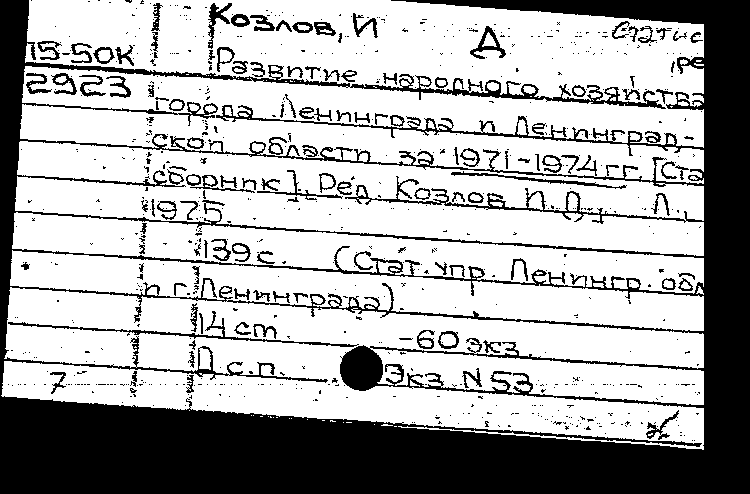 Козлов, И Д Статис
15-50К ,ре
Развитие народного хозяйства
2923
города Ленинграда и Ленинград-
ской области за 1971-1974 гг. [Ста
сборник]. Ред. Козлов И.Д., Л.,
1975.
139 с. (Стат. упр. Ленингр. обл
и г. Ленинграда).
14 cm -60 экз.
Д с.п. Экз. N 53.
7